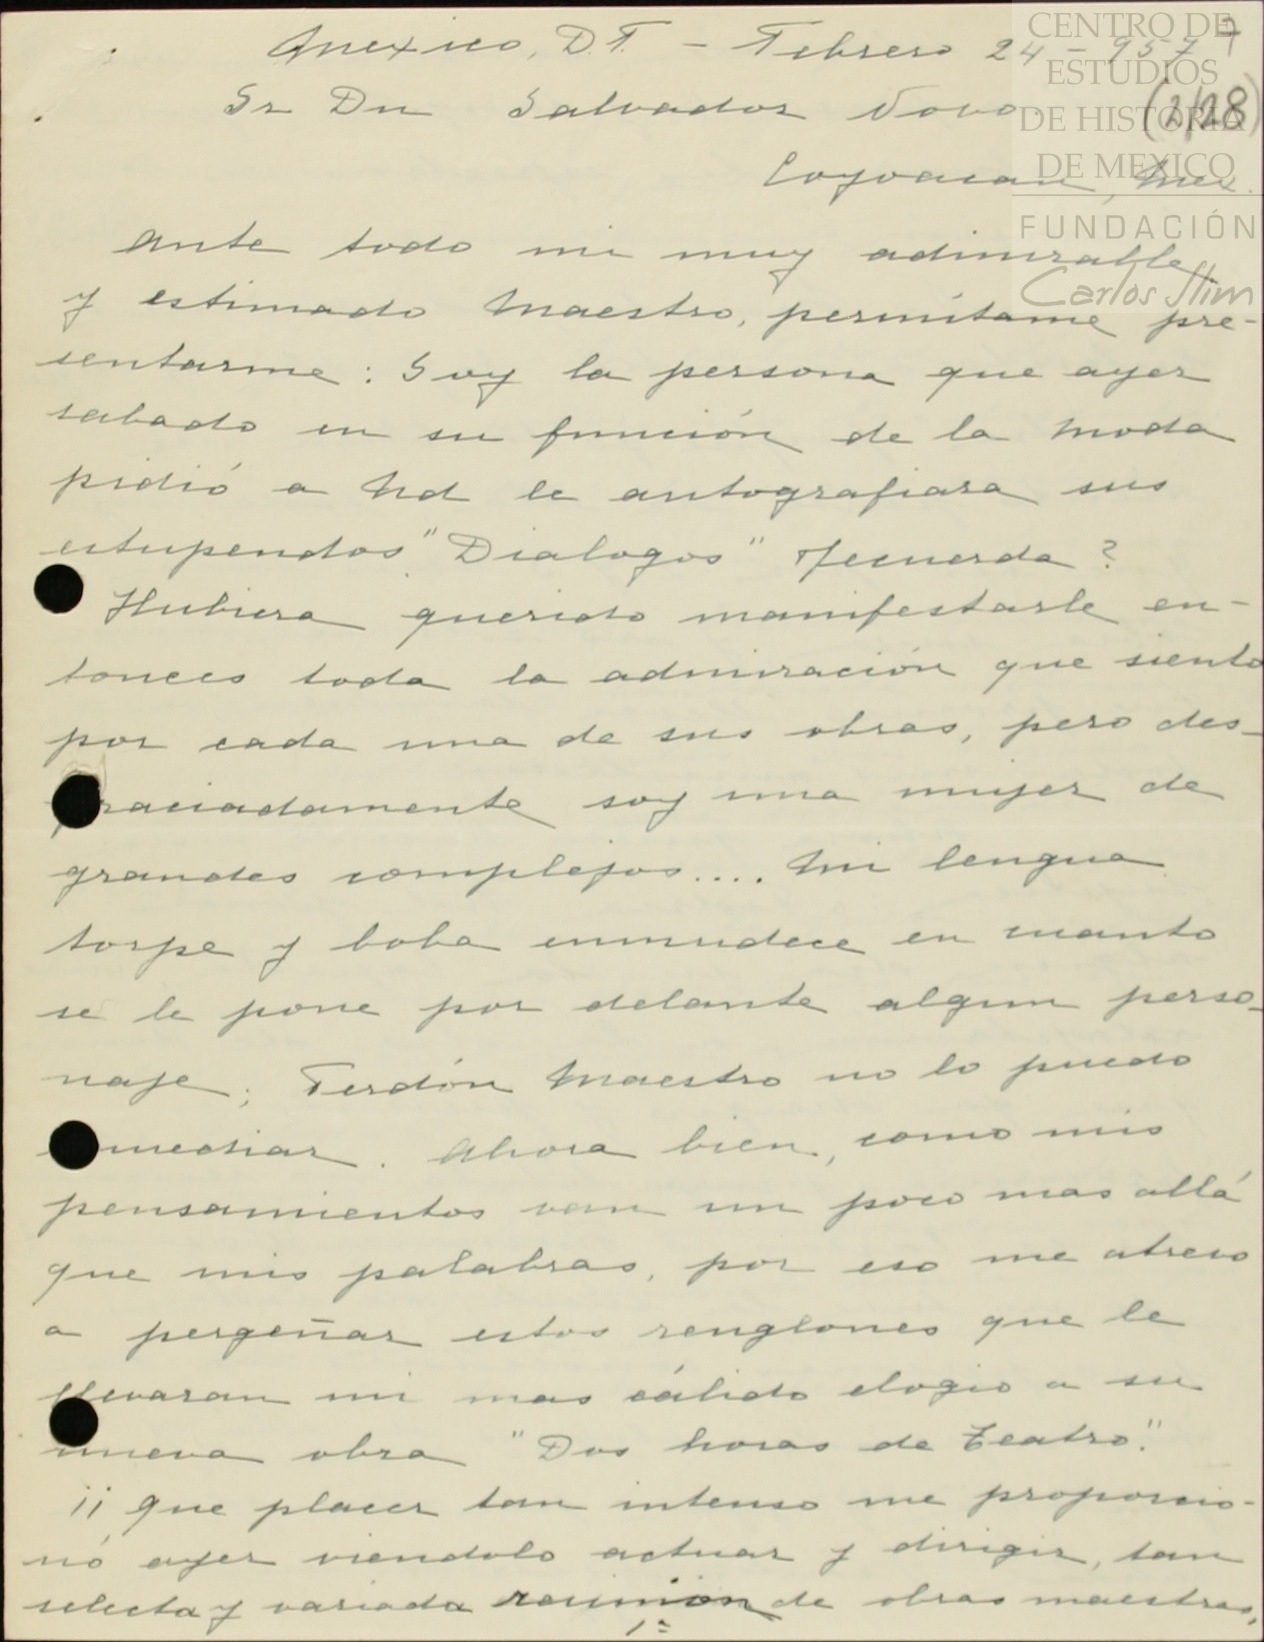 CENTRO DE
ESTUDIOS
DE HISTORIA
DE MEXICO
FUNDACIÓN
Carlos Slim
Mexico, D.F. - Febrero 24 - 957
7
(2/28)
Sr Dn Salvador Novo.
Coyoacan, Mex.
Ante todo mi muy admirable
y estimado Maestro, permítame pre-
sentarme: Soy la persona que ayer
sabado en su función de la Moda
pidió a Ud le autografiara sus
estupendos "Dialogos" Recuerda?
Hubiera querido manifestarle en-
tonces toda la admiración que siento
por cada una de sus obras, pero des-
graciadamente soy una mujer de
grandes complejos.... Mi lengua
torpe y boba enmudece en cuanto
se le pone por delante algun perso-
naje; Perdón Maestro no lo puedo
remediar. Ahora bien, como mis
pensamientos van un poco mas allá
que mis palabras, por eso me atrevo
a pergeñar estos renglones que le
llevaran mi mas cálido elogio a su
nueva obra "Dos horas de Teatro."
¡¡ Que placer tan intenso me proporcio-
nó ayer viendolo actuar y dirigir, tan
selecta y variada reunion de obras maestras,
1=